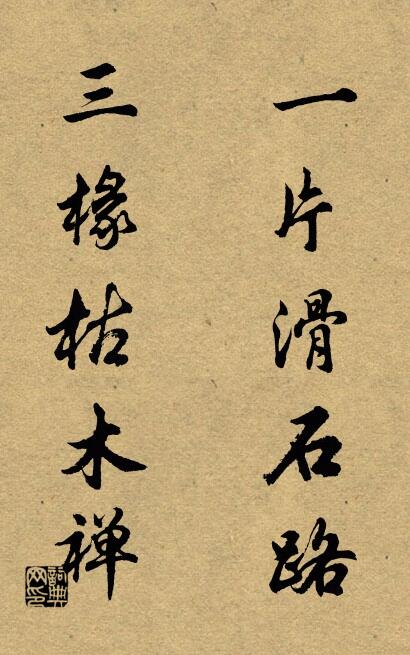 一片滑石路
三椽枯木禅
詞典网印